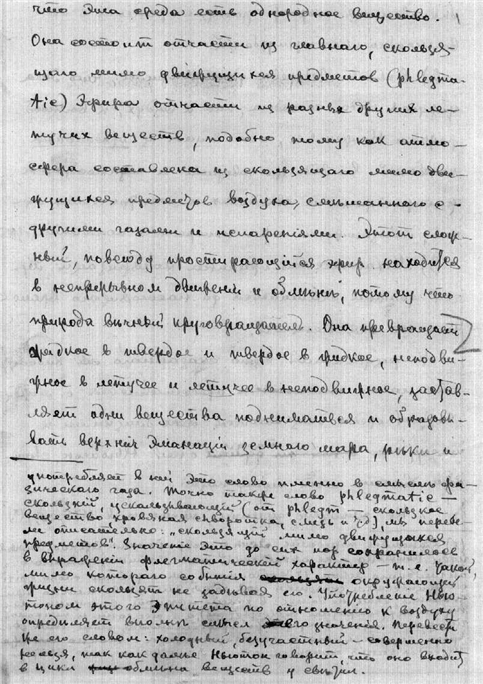 что эта среда есть однородное вещество.
Она состоит отчасти из главного, скользя-
щаго мимо движущихся предметов (phlegma-
tic) Эфира отчасти из разных других ле-
тучих веществ, подобно тому как атмо-
сфера составлена из скользящаго мимо дви-
жущихся предметов воздуха, смешанного с
другими газами и испарениями. Этот слож-
ный, повсюду простирающийся эфир находится
в непрерывном движении и обмене, потому что
природа вечный круговращатель. Она превращает
жидкое в твердое и твердое в жидкое, неподви-
жное в летучее и летучее в неподвижное, застав-
ляет одни вещества подниматься и образовы-
вать верхние эманации земного шара, реки и
употребляет в ней это слово именно в смысле фи-
зического газа. Точно также слово phlegmatic —
скользкий, ускользывающий (от phlegm — скользкое
вещество кровяная сыворотка, слизь и ), мы переве-
ли описательно: "скользящий мимо движущихся
предметов". Значение это до сих пор сохранилось
в выражении флегматический характер — т. е. такой,
мимо которого события окружающей
жизни скользят не задевая его. Употребление Нью-
тоном этого эпитета по отношению к воздуху
определяет вполне смысл его значения. Перевести
же его словом: холодный, безучастный — совершенно
нельзя, так как далее Ньютон говорит, что оно входит
в цикл обмена веществ у